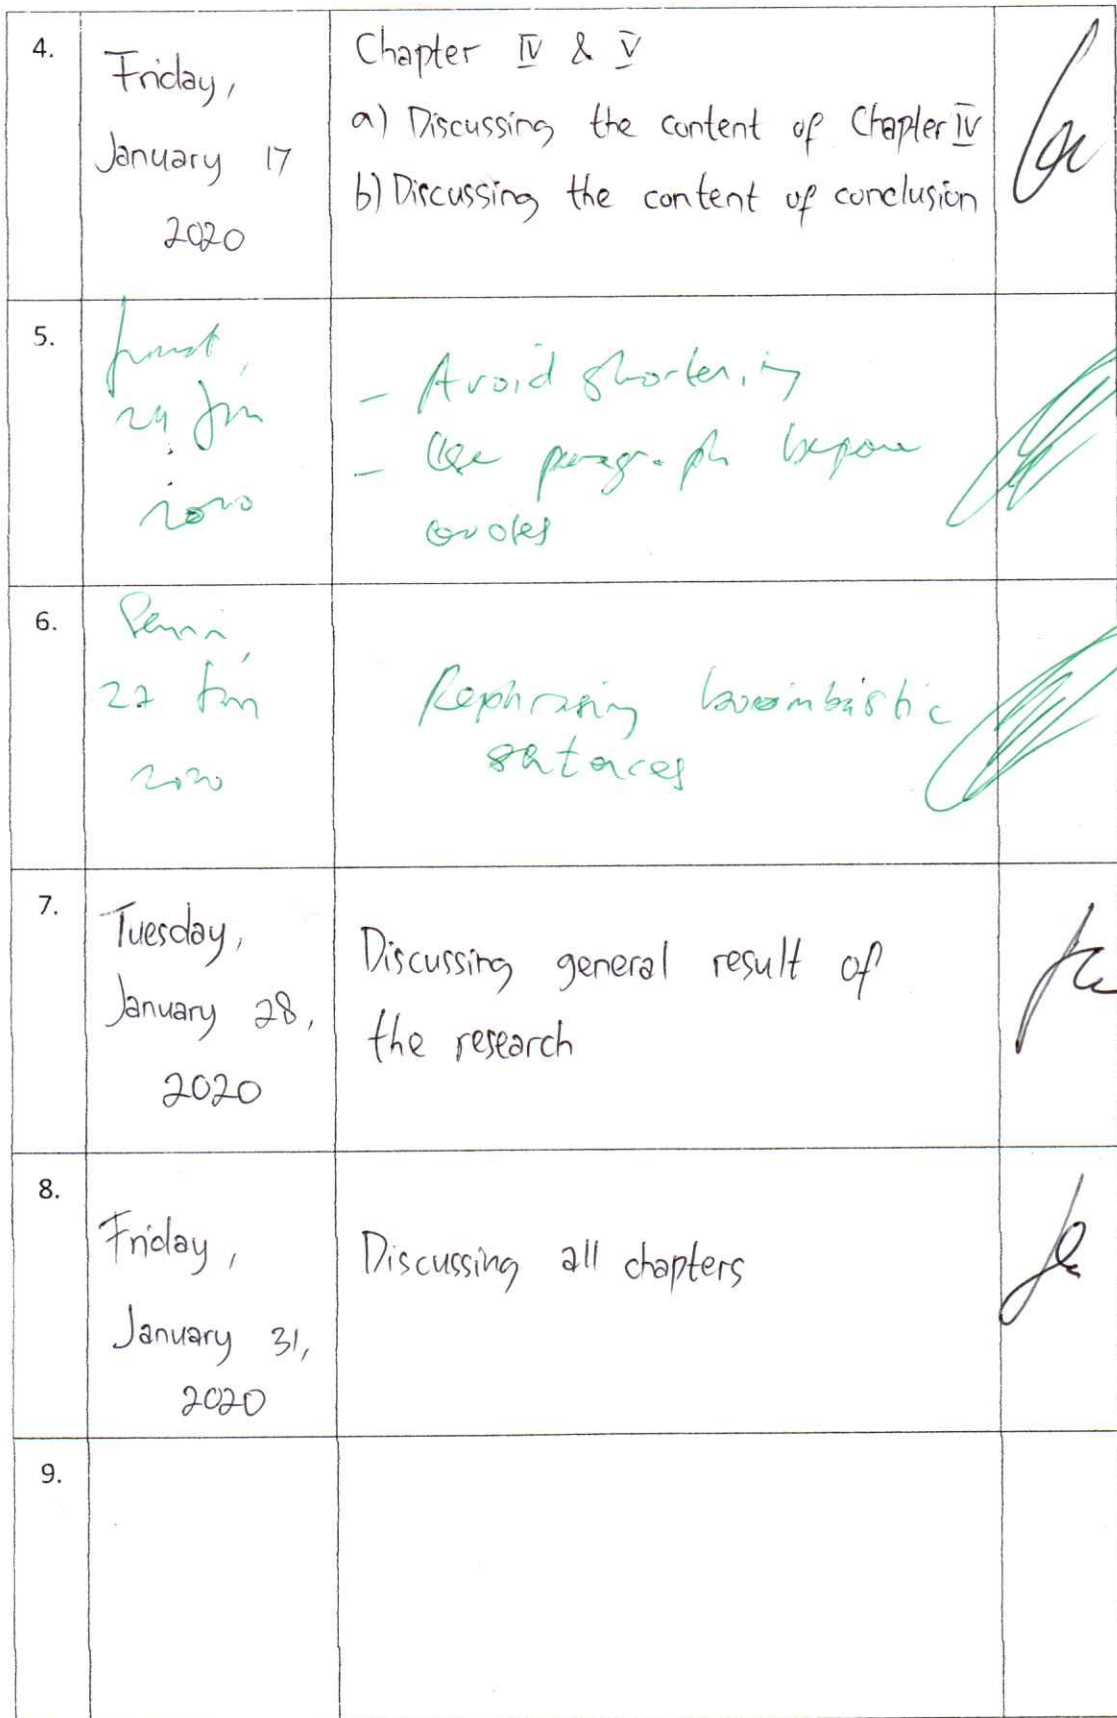 4.
Friday,
January 17
2020
Chapter IV & V
a) Discussing the content of Chapter IV
b) Discussing the content of conclusion
5.
Jumat,
24 Jan
2020
- Avoid shortening
- Use paragraph before
quotes
6.
Senin,
27 Jan
2020
Rephrasing
sentences
7.
Tuesday,
January 28,
2020
Discussing general result of
the research
8.
Friday,
January 31,
2020
Discussing all chapters
9.